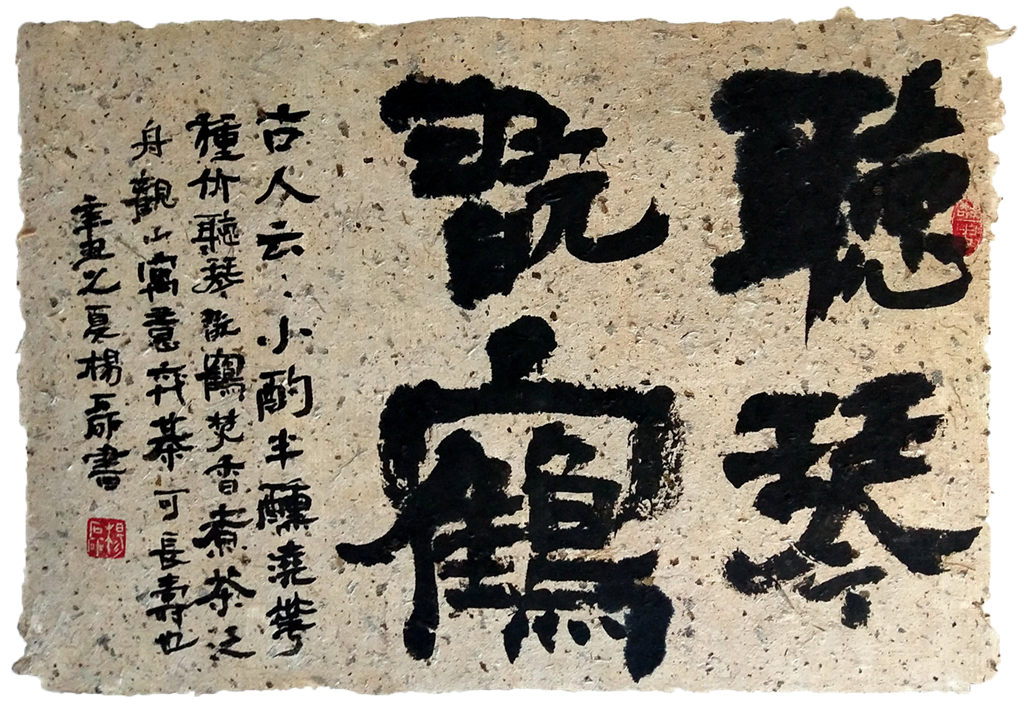 聽琴
翫鶴
古人云小酌半醺澆華
種竹聽琴翫鶴焚香煮茶泛
舟觀山寓意弈棊可長壽也
辛丑之夏楊書